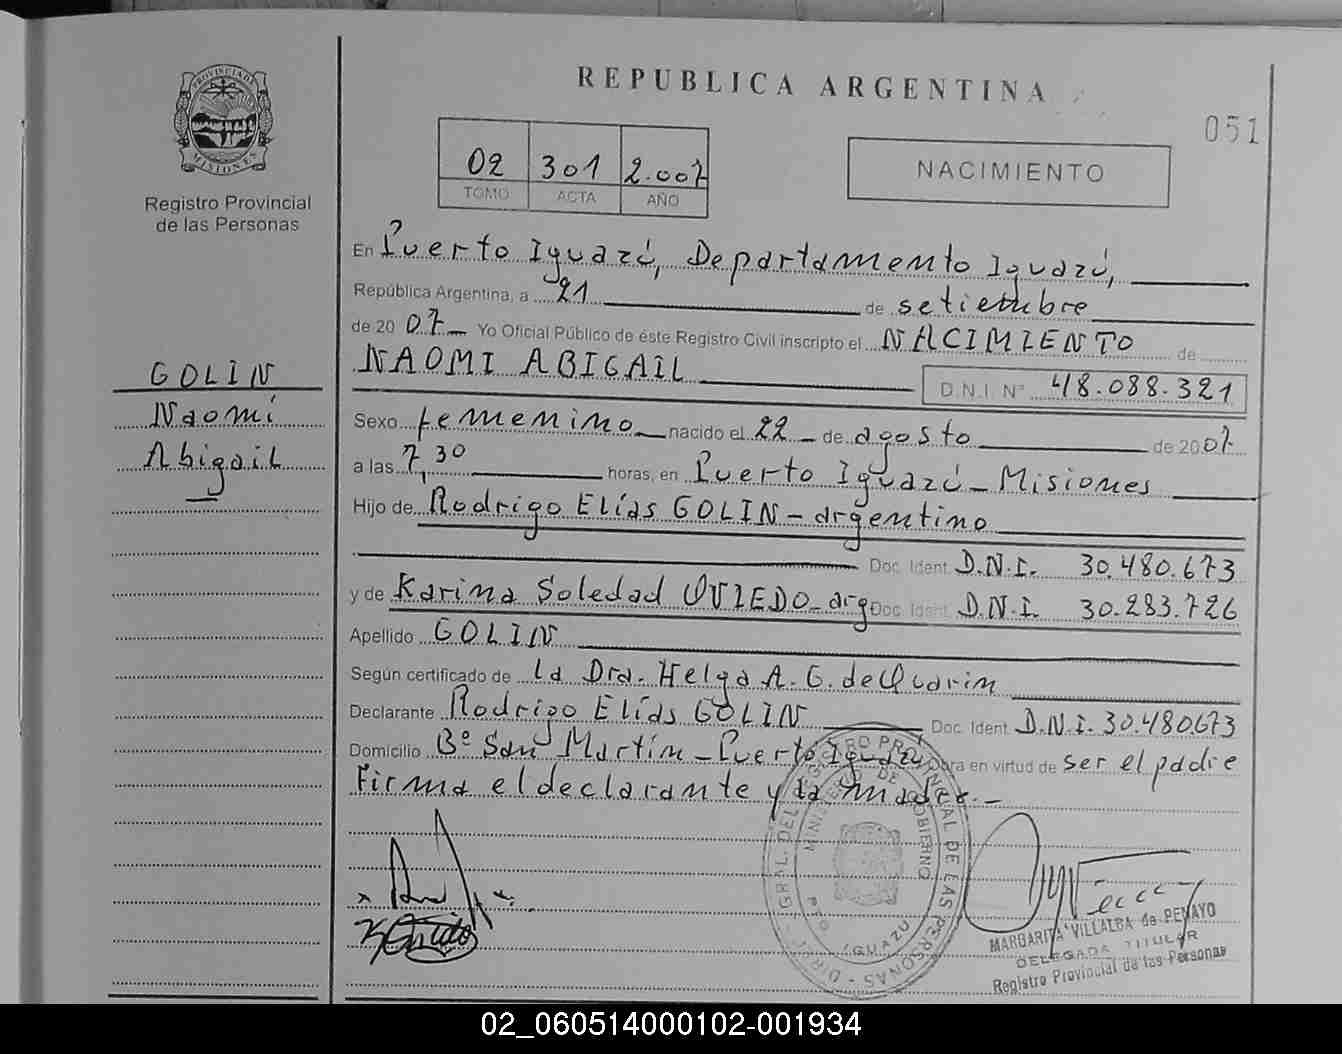 PROVINCIA DE
MISIONES
Registro Provincial
de las Personas
GOLIN
Naomí
Abigail
REPUBLICA ARGENTINA
051
02 301 2.007
TOMO ACTA AÑO
NACIMIENTO
En Puerto Iguazú, Departamento Iguazú,
República Argentina, a 21 de setiembre
de 20 07 Yo Oficial Público de éste Registro Civil inscripto el NACIMIENTO de
NAOMI ABIGAIL D.N.I. N° 48.088.321
Sexo femenino nacido el 22 de agosto de 20 07
a las 7,30 horas, en Puerto Iguazú - Misiones
Hijo de Rodrigo Elías GOLIN - argentino
Doc. Ident. D.N.I. 30.480.673
y de Karina Soledad OVIEDO - arg Doc. Ident. D.N.I. 30.283.726
Apellido GOLIN
Según certificado de la Dra. Helga A. G. de Quarin
Declarante Rodrigo Elías GOLIN Doc. Ident. D.N.I. 30.480.673
Domicilio B° San Martín - Puerto Iguazú Obra en virtud de ser el padre
Firma el declarante y la madre.-
DIREC. GRAL. DEL REGISTRO PROVINCIAL DE LAS PERSONAS
MINISTERIO DE GOBIERNO
PTO IGUAZU
MARGARITA VILLALBA de PENAYO
DELEGADA TITULAR
Registro Provincial de las Personas
02_060514000102-001934